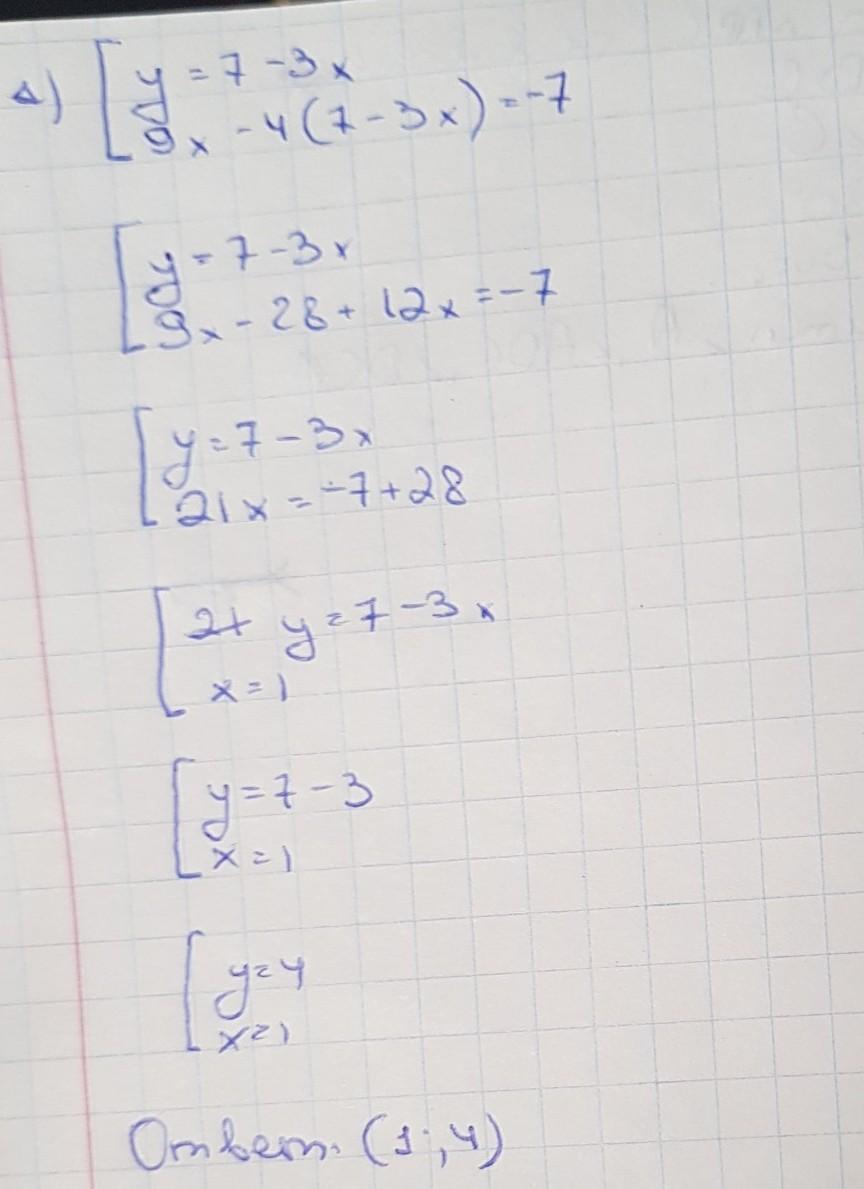 д) [y = 7 - 3x
9x - 4(7 - 3x) = -7
[y = 7 - 3x
9x - 28 + 12x = -7
[y = 7 - 3x
21x = -7 + 28
[21 y = 7 - 3x
x = 1
[y = 7 - 3
x = 1
[y = 4
x = 1
Ответ. (1; 4)